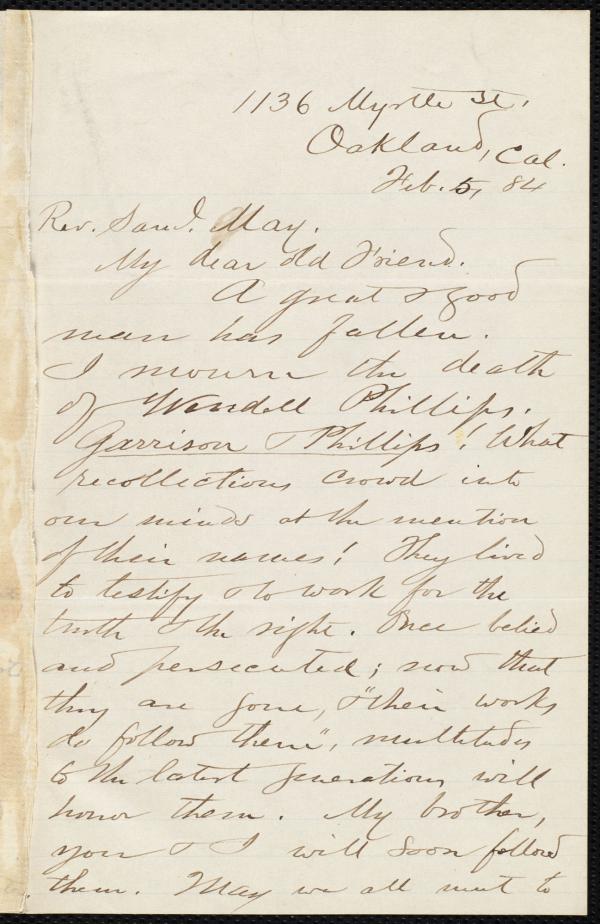 1136 Myrtle St.,
Oakland, Cal.
Feb. 5, 84
Rev. Saml. May.
My dear old Friend.
A great & good
man has fallen.
I mourn the death
of Wendell Phillips.
Garrison & Phillips! What
recollections crowd into
our minds at the mention
of their names! They lived
to testify & to work for the
truth & the right. Once belied
and persecuted; now that
they are gone, & "their works
do follow them", multitudes
to the latest generations will
honor them. My brother,
you & I will soon follow
them. May we all meet to